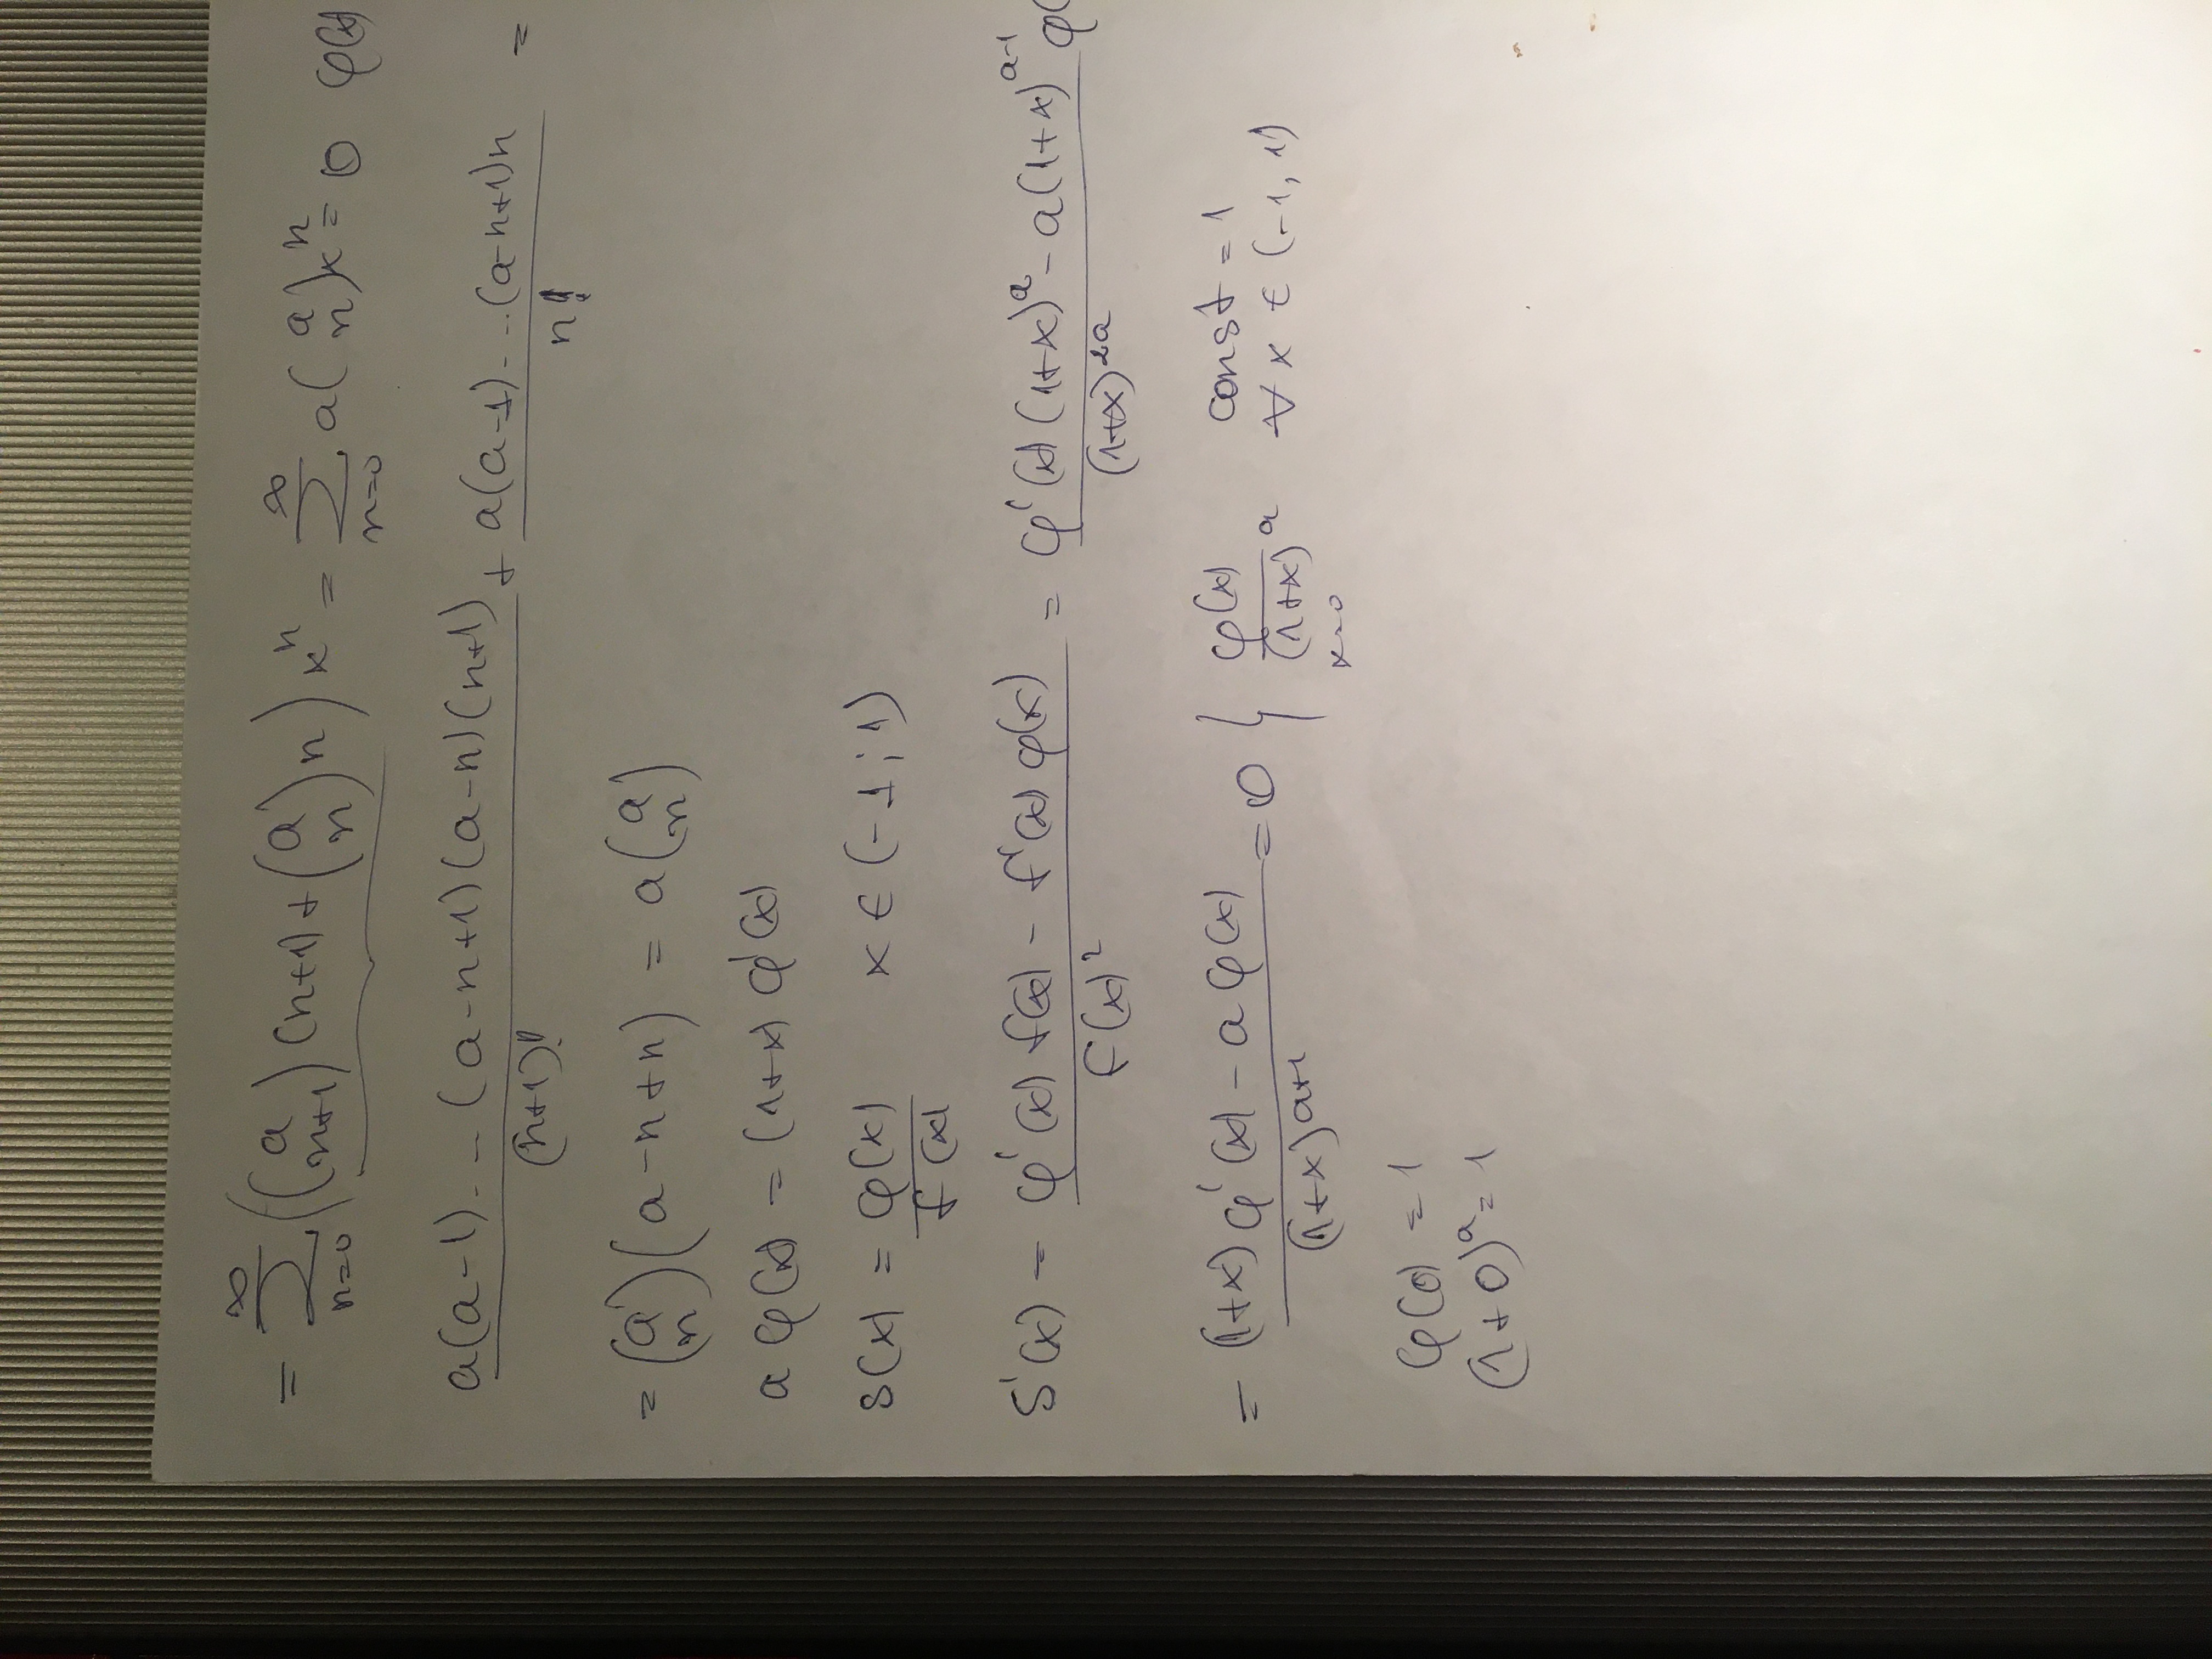 = ∑_{n=0}^{∞} ( (a n+1) (n+1) + (a n) n ) xⁿ = ∑_{n=0}^{∞} a (a n) xⁿ = 0 φ(x)
a(a-1)...(a-n+1)(a-n)(n+1) / (n+1)! + a(a-1)...(a-n+1)n / n! =
= (a n)(a-n+n) = a (a n)
a φ(x) = (1+x) φ'(x)
S(x) = φ(x) / f(x) x ∈ (-1; 1)
S'(x) = φ'(x) f(x) - f'(x) φ(x) / f(x)² = φ'(x)(1+x)^a - a(1+x)^{a-1} φ( / (1+x)^{2a}
= (1+x) φ'(x) - a φ(x) / (1+x)^{a+1} = 0 φ(x) / (1+x)^a const = 1
x=0 ∀ x ∈ (-1, 1)
φ(0) = 1
(1+0)^a = 1